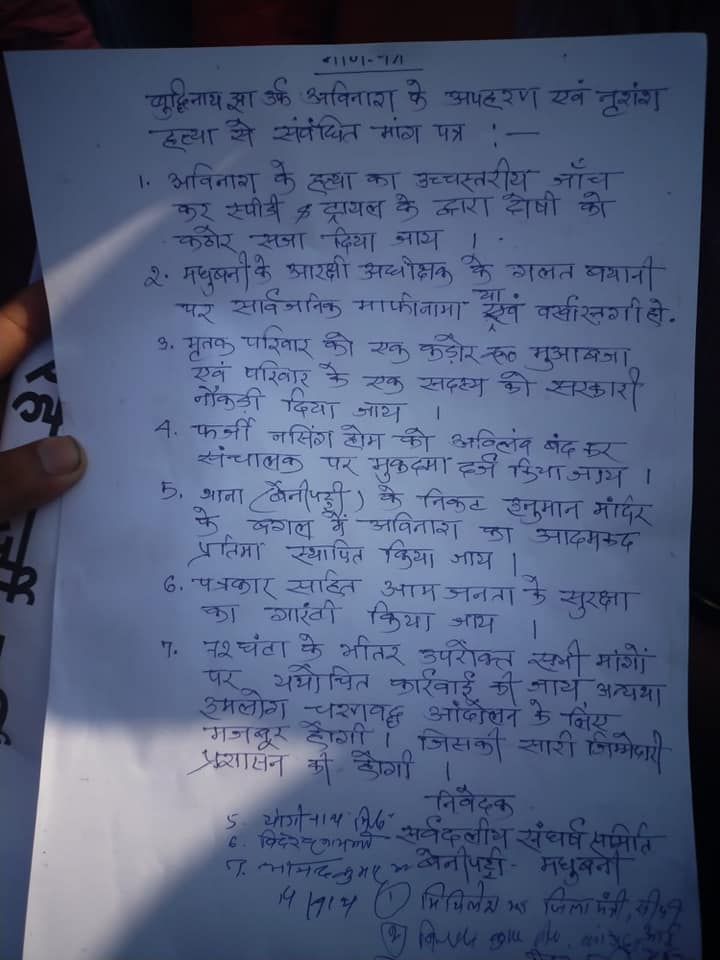 माँग-पत्र
बुद्धिनाथ झा उर्फ अविनाश के अपहरण एवं नृशंश
हत्या से संबंधित मांग पत्र :—
1. अविनाश के हत्या का उच्चस्तरीय जाँच
कर स्पीडी ट्रायल के द्वारा दोषी को
कठोर सजा दिया जाय ।
2. मधुबनी के आरक्षी अधीक्षक के गलत बयानी
पर सार्वजनिक माफीनामा या एवं बर्खास्तगी हो.
3. मृतक परिवार को एक कड़ोर रू० मुआबजा
एवं परिवार के एक सदस्य को सरकारी
नौकड़ी दिया जाय ।
4. फर्जी नर्सिंग होम को अविलंब बंद कर
संचालक पर मुकदमा दर्ज किया जाय ।
5. थाना (बेनीपट्टी) के निकट हनुमान मंदिर
के बगल में अविनाश का आदमकद
प्रतिमा स्थापित किया जाय ।
6. पत्रकार सहित आम जनता के सुरक्षा
का गारंटी किया जाय ।
7. 72 घंटा के भीतर उपरोक्त सभी मांगों
पर यथोचित कार्रवाई की जाय अन्यथा
हमलोग चरणवद्ध आंदोलन के लिए
मजबूर होंगी । जिसकी सारी जिम्मेदारी
प्रशासन की होगी ।
निवेदक
5. योगीनाथ मिश्र
सर्वदलीय संघर्ष समिति
6.
7.
बेनीपट्टी - मधुबनी
① मिथिलेश झा जिला मंत्री,
②